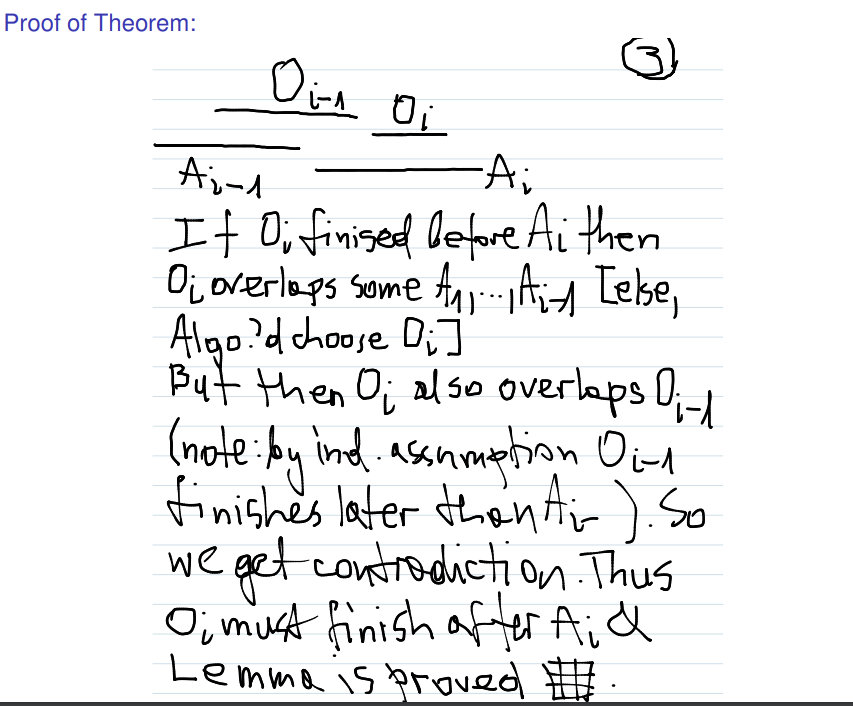 Proof of Theorem:
3
O_{i-1} O_i
A_{i-1} A_i
If O_i finised before A_i then
O_i overlaps some A_1,...,A_{i-1} [else,
Algo?d choose O_i]
But then O_i also overlaps O_{i-1}
(note: by ind. assumption O_{i-1}
finishes later than A_{i-}). So
we get contradiction. Thus
O_i must finish after A_i &
Lemma is proved